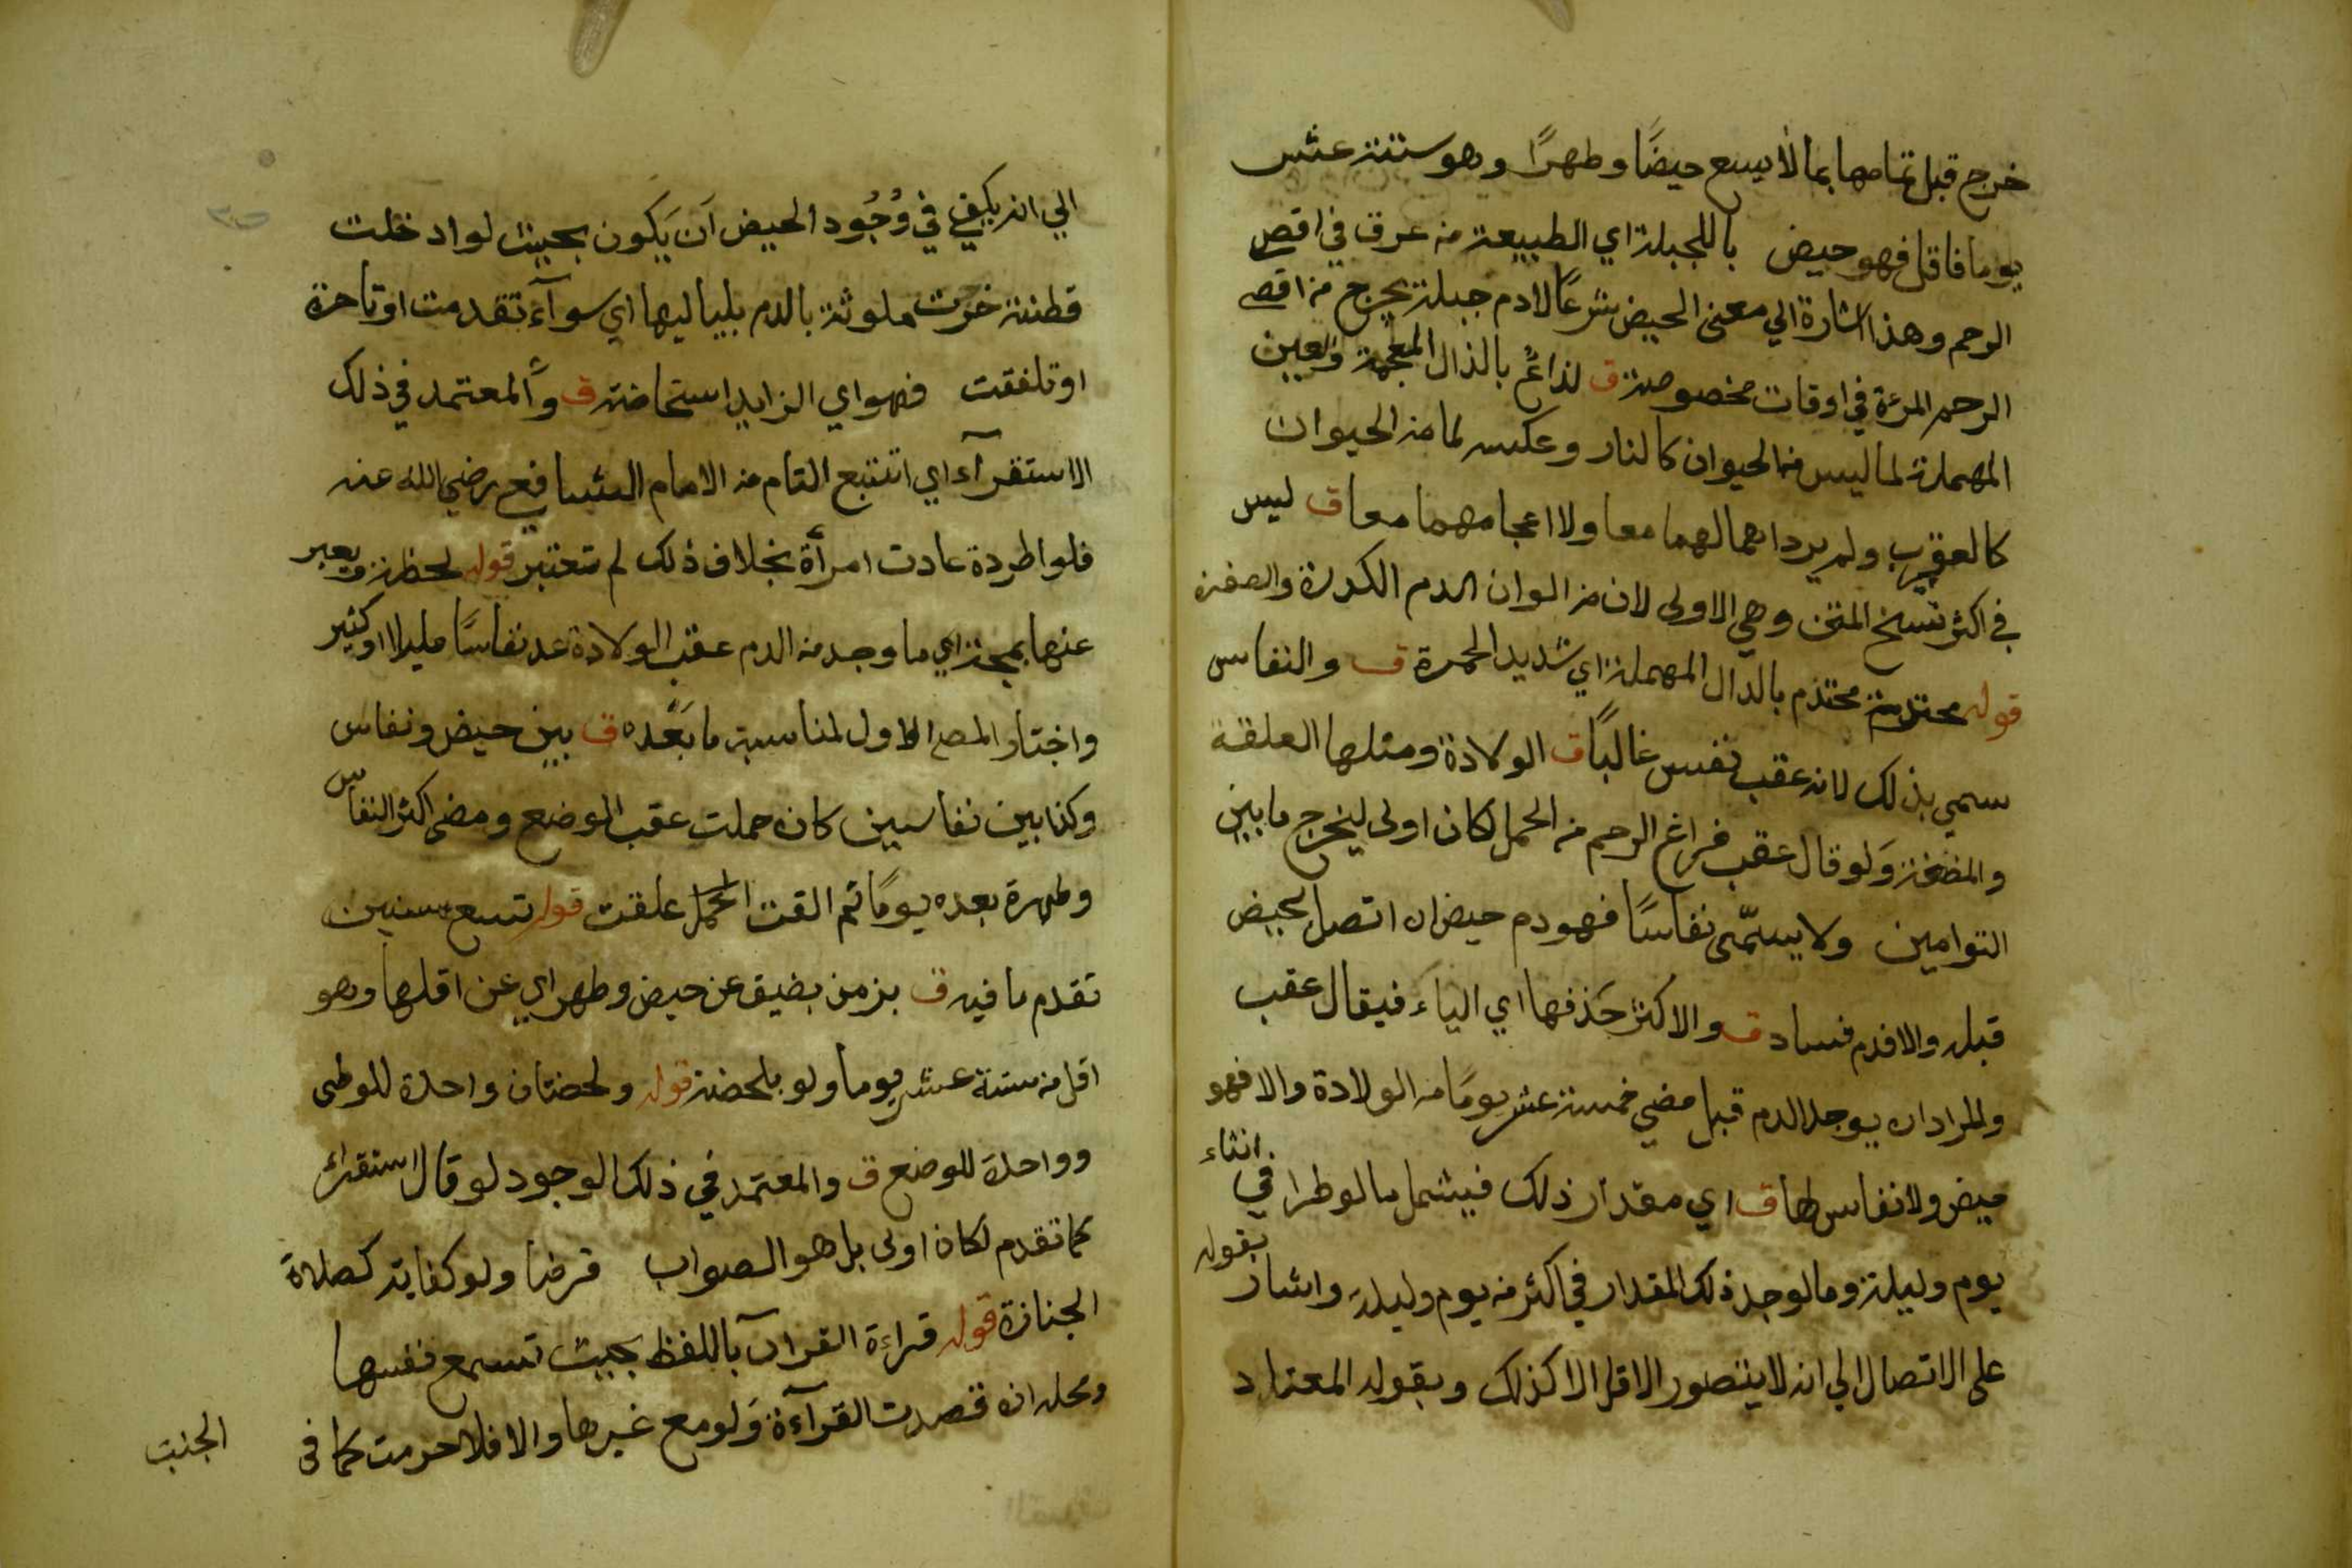 خرج قبل تمامها بما لا يسع حيضًا وطهرًا وهو ستة عشر
يوما فاقل فهو حيض باللجبلة اي الطبيعة من عرق في اقصى
الرحم وهذا اشارة الي معنى الحيض شرعًا لا دم جبلة يخرج من اقصى
الرحم المرءة في اوقات مخصوصة ق لذاعٌ بالذال المعجمة والعين
المهملة لما ليس من الحيوان كالنار وعكسه لما من الحيوان
كالعقرب ولم يرد اهمالهما معا ولا اعجامهما معا ق ليس
في اكثر نسخ المتن وهي الاولى لان من الوان الدم الكدرة والصفرة
قوله محتدمة محتدم بالدال المهملة اي شديد الحمرة ق والنفاس
سمي بذلك لانه عقب نفس غالبًا ق الولادة ومثلها العلقة
والمضغة وَلو قال عقب فراغ الرحم من الحمل لكان اولى ليخرج ما بين
التوامين ولا يسمّى نفاسًا فهو دم حيض ان اتصل بحيض
قبله والا فدم فساد ق والاكثر حَذفها اي الياء فيقال عقب
والمراد ان يوجد الدم قبل مضي خمسة عشر يومًا من الولادة والا فهو
حيض ولا نفاس لها ق اي مقدار ذلك فيشمل ما لو طرا في اثناء
يوم وليلة وما لو وجد ذلك المقدار في اكثر من يوم وليلة واشار بقوله
على الاتصال الي انه لا يتصور الاقل الا كذلك وبقوله المعتاد
الي انه يكفي في وُجُود الحيض اَن يَكون بحيث لو ادخلت
قطنة خرجت ملوثة بالدم بلياليها اي سوآء تقدمت او تاخرة
او تلفقت فهو اي الزايد استحاضة ق وَالمعتمد في ذلك
الاستقرآء اي التتبع التام من الامام الشافعي رضي الله عنه
فلو اطردة عادت امرأة بخلاف ذلك لم تعتبر قوله لحظة ويعبر
عنها بمجة اي ما وجد من الدم عقب الولادة عد نفاسًا قليلا او كثير
واختار المص الاول لمناسبة ما بَعْده ق بين حيض ونفاس
وكذا بين نفاسين كان حملت عقب الوضع ومضى اكثر النفاس
وطهرة بعده يومًا ثم القت الحمل علقت قوله تسع سنين
تقدم ما فيه ق بزمن يضيق عن حيض وطهر اي عن اقلها وهو
اقل من ستة عشر يوما ولو بلحضة قوله ولحضتان واحدة للوطى
وواحدة للوضع ق والمعتمد في ذلك الوجود لو قال استقرائ
كما تقدم لكان اولى بل هو الصواب فرضا ولو كفاية كصلاة
الجنازة قوله قراءة القران باللفظ بحيث تسمع نفسها
ومحله ان قصدت القرآءة وَلو مع غيرها والا فلا حرمت كما في
الجنب